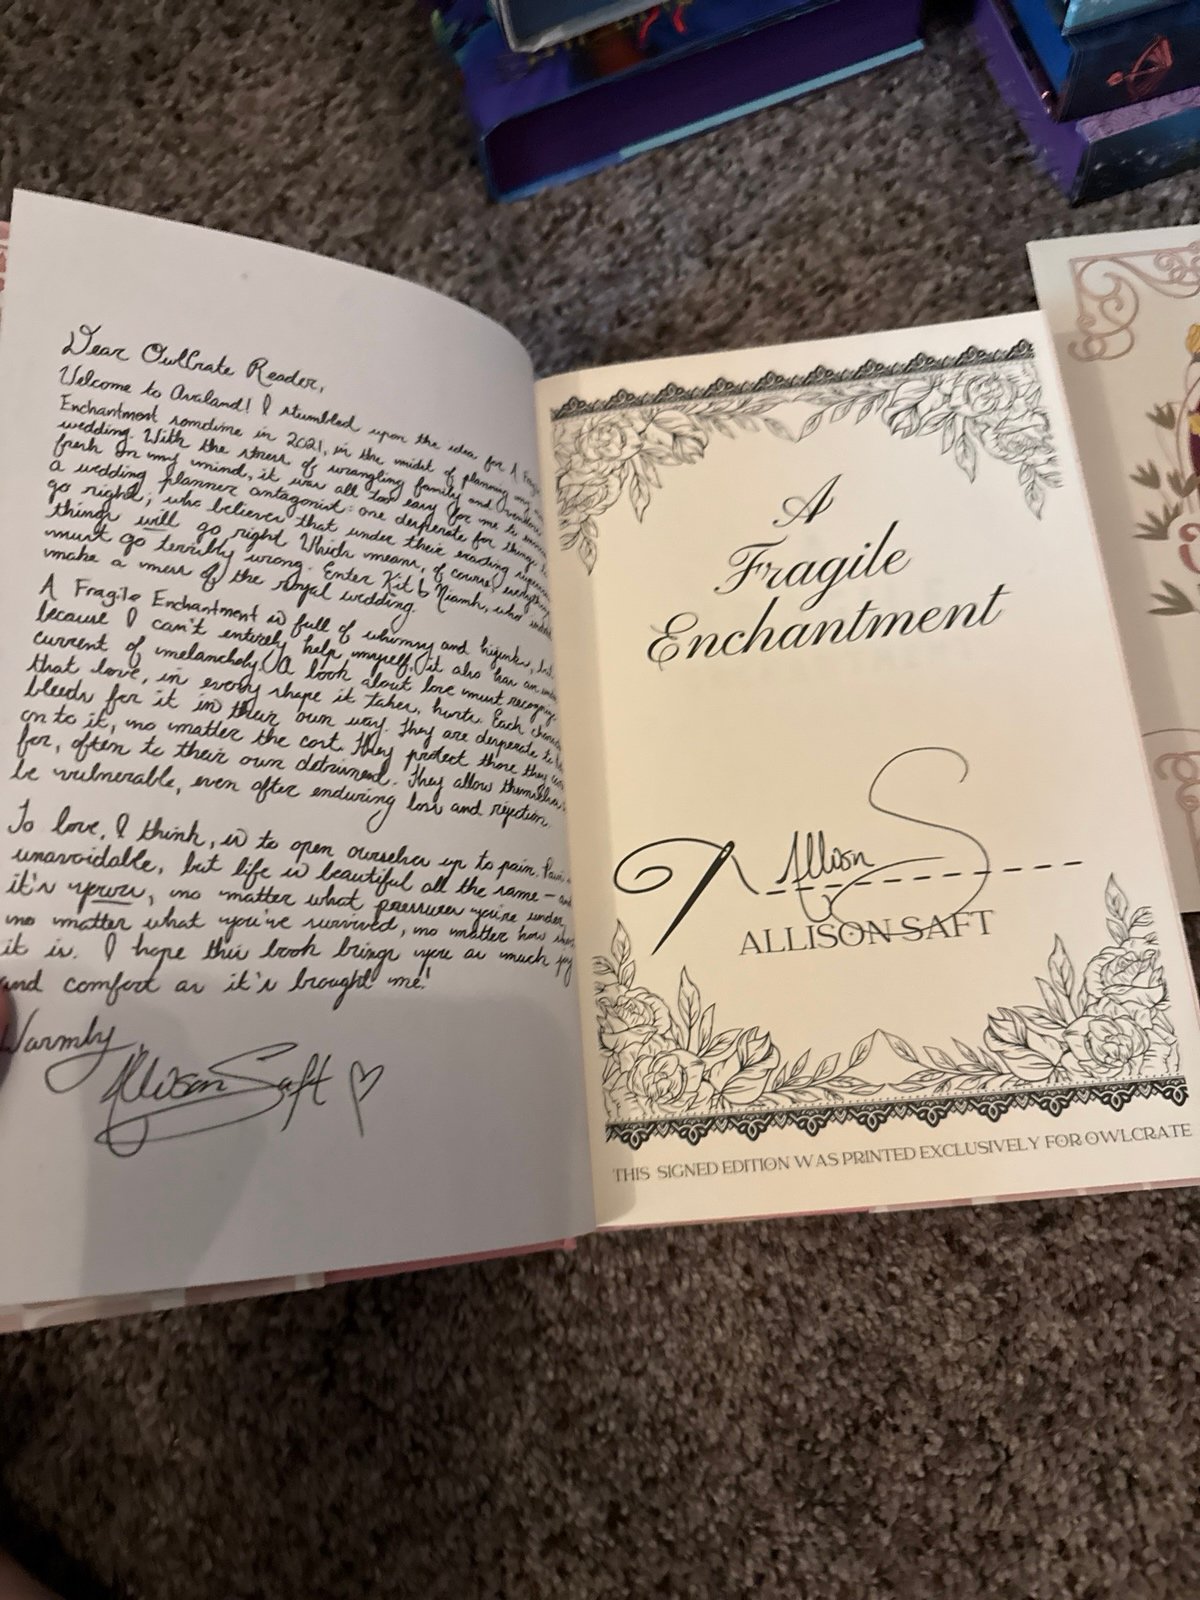 Dear OwlCrate Reader,
Welcome to Avaland! I stumbled upon the idea for A
Enchantment sometime in 2021, in the midst of planning my
wedding. With the stress of wrangling family and vendors
fresh on my mind, it was all too easy for me to
a wedding planner antagonist: one desperate for things to
go right, who believes that under their exacting
things will go right. Which means, of course, everything
must go terribly wrong. Enter Kit & Niamh, who
make a mess of the royal wedding.
A Fragile Enchantment is full of whimsy and hijinks, but
because I can't entirely help myself, it also has an
current of melancholy. A book about love must recognize
that love, in every shape it takes, hurts. Each
bleeds for it in their own way. They are desperate to
on to it, no matter the cost. They protect those they
for, often to their own detriment. They allow themselves
be vulnerable, even after enduring loss and rejection.
To love, I think, is to open ourselves up to pain. Pain
unavoidable, but life is beautiful all the same – and
it's yours, no matter what pressures you're under,
no matter what you've survived, no matter how
it is. I hope this book brings you as much joy
and comfort as it's brought me!
Warmly,
Allison Saft
A
Fragile
Enchantment
Allison S
ALLISON SAFT
THIS SIGNED EDITION WAS PRINTED EXCLUSIVELY FOR OWLCRATE